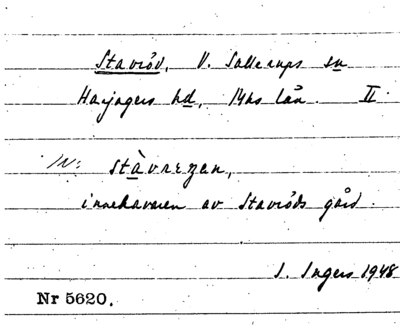 Stavröd, V. Sallerups sn
Harjagers hd, Mhs län. II
IV: stàvrɛzen,
innehavaren av Stavröds gård.
I. Ingers 1948
Nr 5620.